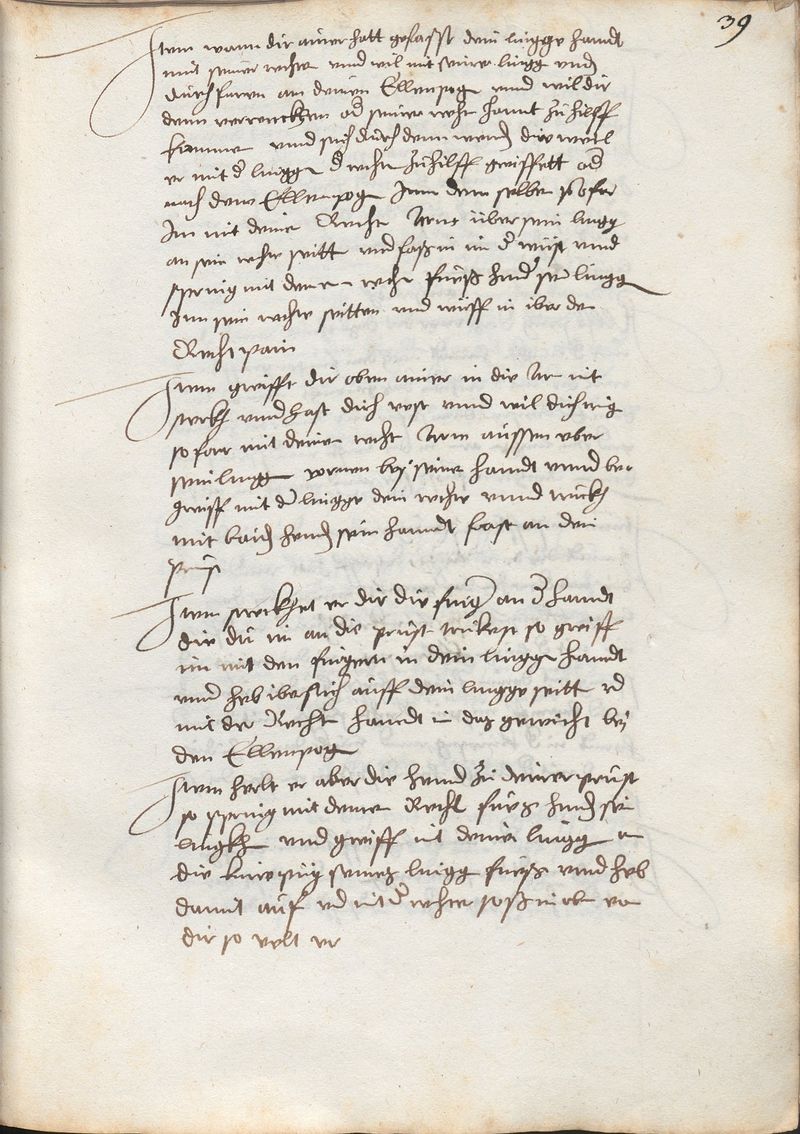 39
Item wann dir ainer hatt gefasst dein lingge handt
mit seiner rechten vnnd wil mit seiner lingg vnd
durchfaren an deinen Ellenpog vnnd wil dir
denn verrenckhen od seiner recht hannt zu hilff
kammen vnnd sich durch denn wend die weil
er mit d lingge d rechte zu hilff greiffett od
nach dem Ellenpog Inn dem selben so far
Im mit deine Recht Arm über sein lingg
an sein rechte seitt vnd fass in in d wüst vnnd
spring mit deine recht fuess hind sein lingg
Inn sein rechte seitten vnd würff in iber de
Recht pain
Item greifft dir oben ainer in die Arm mit
sterckh vnnd hast dich vest vnnd wil dich ring
so far mit deine recht Arm aussen vber
sein lingg vornen bey seiner handt vnnd be
greiff mit d lingge dein rechte vnnd truckh
mit baid hend sein handt fast an dein
prust
Item streckhet er dir die fing an d handt
die du im an die prust truckest so greiff
im mit den fingern in dein lingge handt
vnnd heb ibersich auff dein lingge seitt vd
mit der Recht handt in das gewicht bey
den Ellenpog
Item helt er aber die hennd zu deiner prust
so spring mit deine Recht fuess hind sein
lingkh vnd greiff mit deiner lingg in
die kniepüg seines lingg fuess vnnd heb
damit auf vd mit d rechte stoss in oben von
dir so velt er